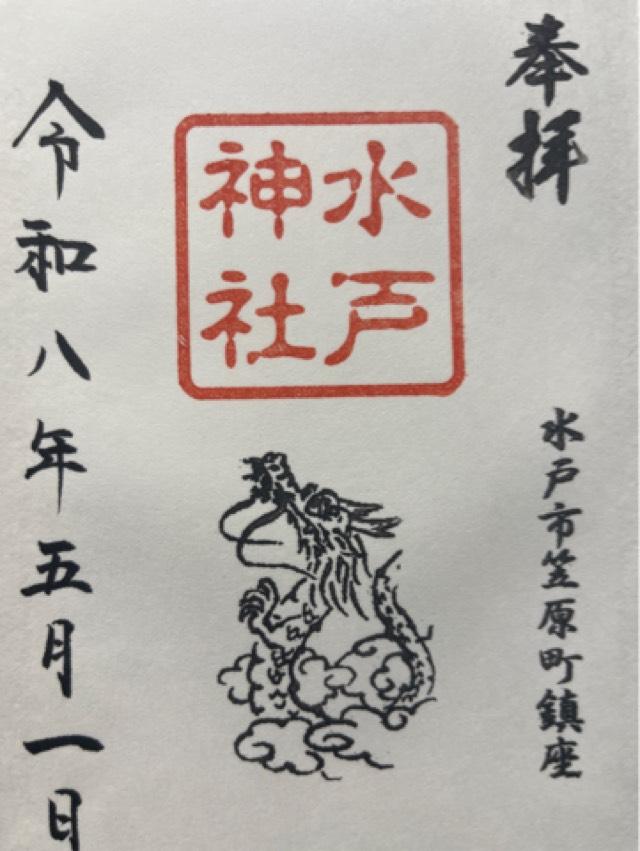 奉拝
水戸市笠原町鎮座
水戸
神社
令和八年五月一日